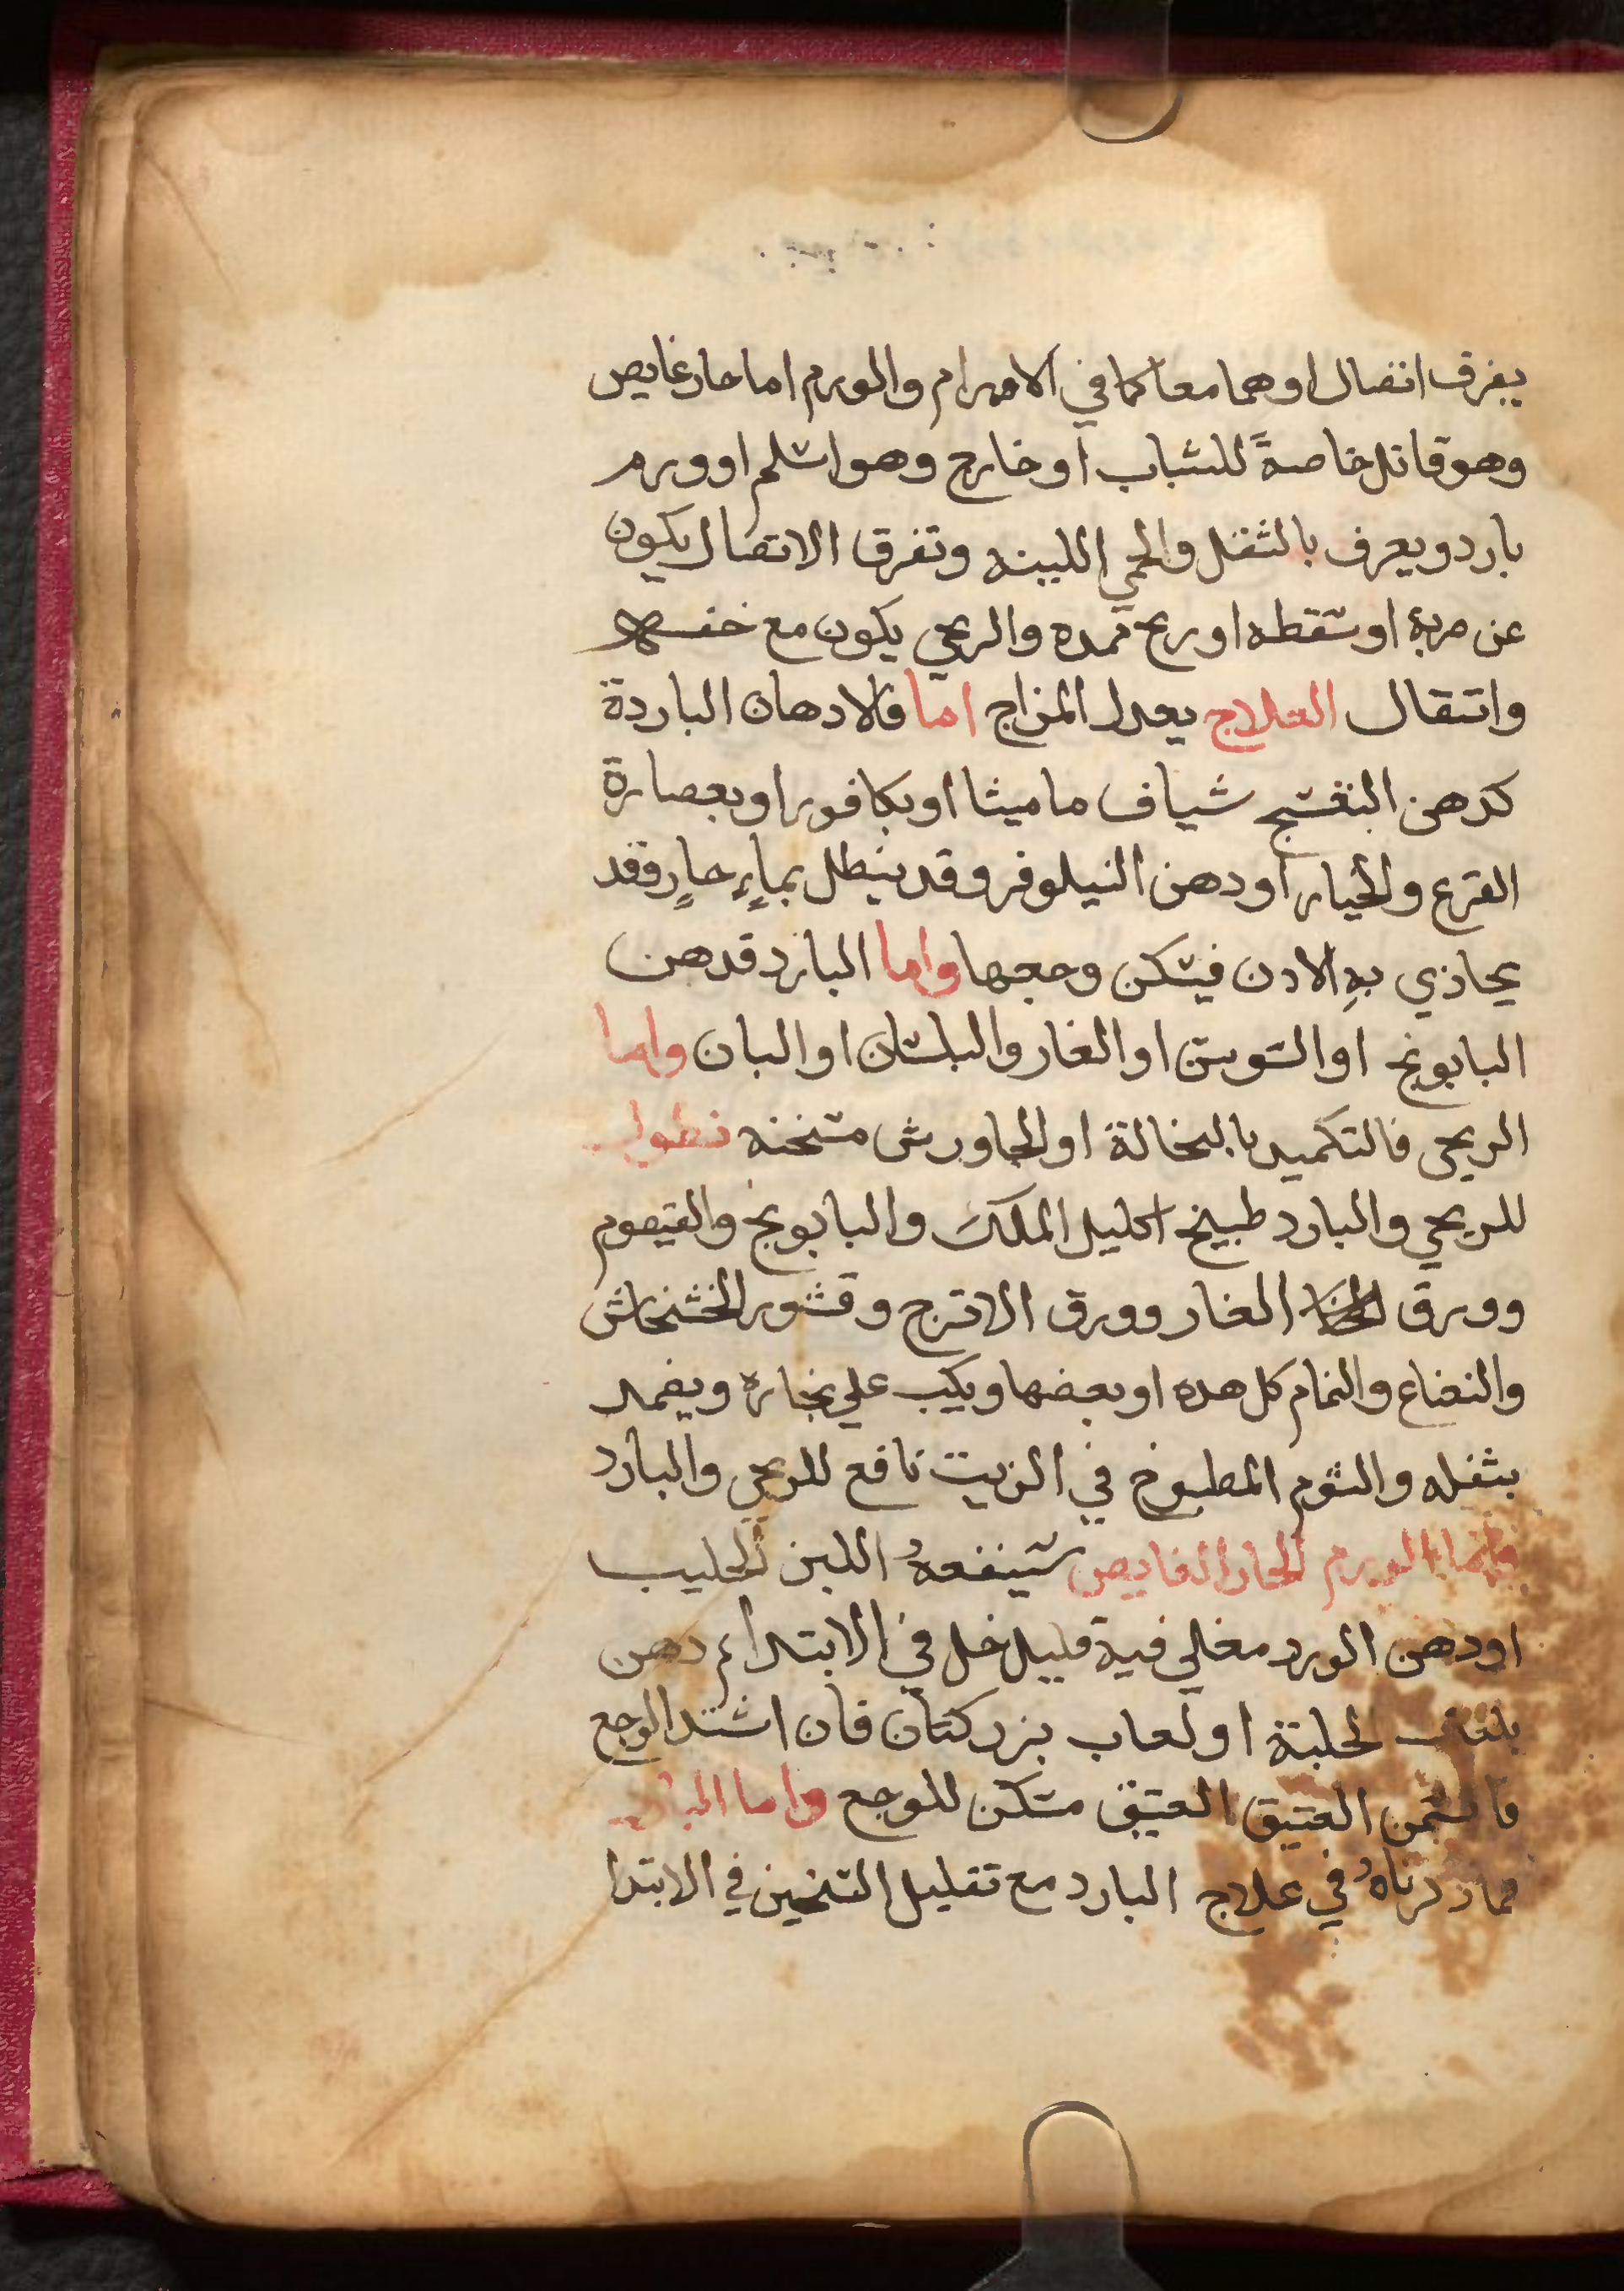 يفرق اتصال او هما معا كما في الاورام والورم اما حار غايص
وهو قاتل خاصةً للشباب او خارج وهو اسلم او ورم
بارد ويعرف بالثقل والحمي اللينه وتفرق الاتصال يكون
عن ضربة او سقطه او ريح ممده والريحي يكون مع خفـ
وانتقال العلاج يعدل المزاج اما فالادهان الباردة
كدهن البنفسج شياف ماميثا او بكافور او بعصارة
القرع والخيار او دهن النيلوفر وقد ينطل بماءٍ حارٍ وقد
يحاذي بهِ الادن فيسكن وجعها واما البارد فدهن
البابونج او السوسن او الغار والبلسان او البان واما
الريحي فالتكميد بالنخالة او الجاورش مسخنه نطول
للريحي والبارد طبيخ اكليل الملك والبابونج والقيصوم
وورق الغار وورق الاترج وقشور الخشخاش
والنعناع والنمام كل هده او بعضها ويكب علي بخاره ويضمد
بثفله والثوم المطبوخ في الزيت نافع للريحي والبارد
واما الورم الحار الغايص سينفعهُ اللبن الحليب
او دهن الورد مغلي فية قليل خل في الابتدا ثم دهن
بلعاب لحلبة او لعاب بزر كتان فان اشتد الوجع
فالسمن العتيق العتيق مسكن للوجع واما البارد
فما دكرناهُ في علاج البارد مع تقليل التسخين في الابتدا